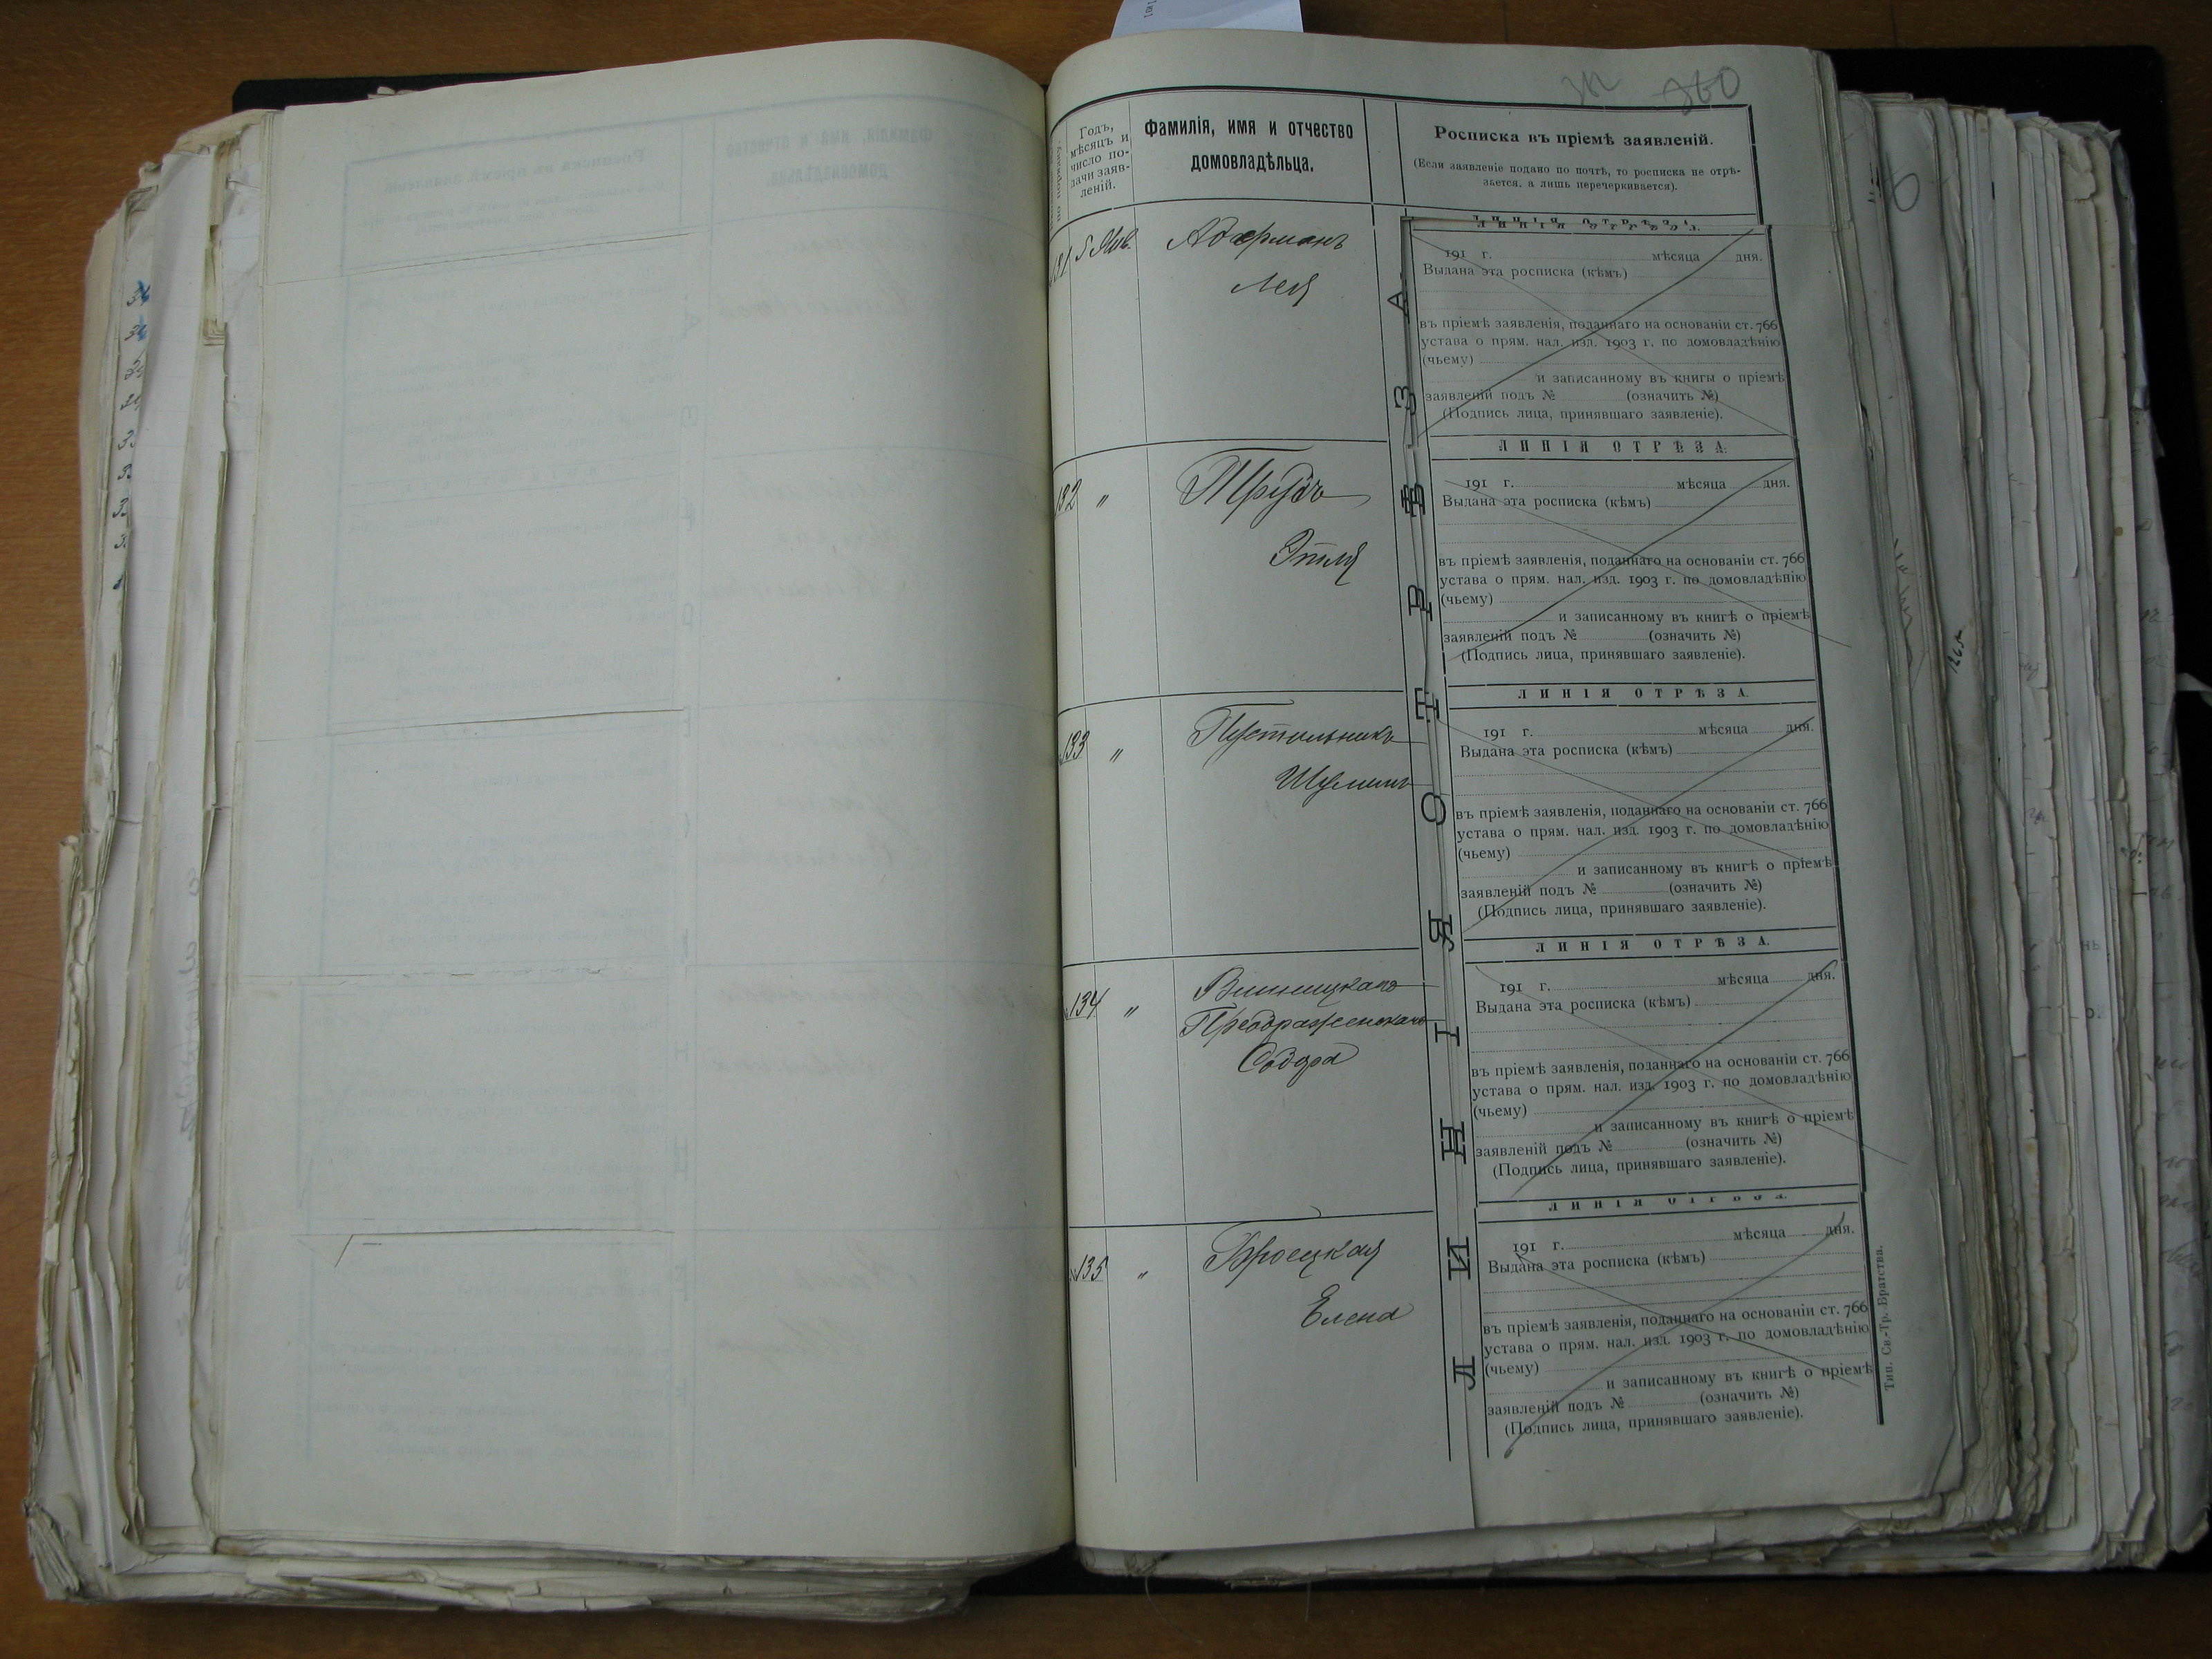 360
Годъ,
мѣсяцъ и
число по-
дачи заяв-
леній.
Фамилія, имя и отчество
домовладѣльца.
Росписка въ пріемѣ заявленій.
(Если заявленіе подано по почтѣ, то росписка не отрѣ-
зается, а лишь перечеркивается).
ЛИНІЯ ОТРѢЗА
131 5 Янв.
Лея
ЛИНІЯ ОТРѢЗА.
191 г. мѣсяца дня.
Выдана эта росписка (кѣмъ)
въ пріемѣ заявленія, поданнаго на основаніи ст. 766
устава о прям. нал. изд. 1903 г. по домовладѣнію
(чьему)
и записанному въ книгы о пріемѣ
заявленій подъ № (означить №)
(Подпись лица, принявшаго заявленіе).
ЛИНІЯ ОТРѢЗА.
132 "
Прудъ
Этля
191 г. мѣсяца дня.
Выдана эта росписка (кѣмъ)
въ пріемѣ заявленія, поданнаго на основаніи ст. 766
устава о прям. нал. изд. 1903 г. по домовладѣнію
(чьему)
и записанному въ книгѣ о пріемѣ
заявленій подъ № (означить №)
(Подпись лица, принявшаго заявленіе).
ЛИНІЯ ОТРѢЗА.
133 "
Пустыльникъ
Шулимъ
191 г. мѣсяца дня.
Выдана эта росписка (кѣмъ)
въ пріемѣ заявленія, поданнаго на основаніи ст. 766
устава о прям. нал. изд. 1903 г. по домовладѣнію
(чьему)
и записанному въ книгѣ о пріемѣ
заявленій подъ № (означить №)
(Подпись лица, принявшаго заявленіе).
ЛИНІЯ ОТРѢЗА.
134 "
Винницкаго
Преображенскаго
Собора
191 г. мѣсяца дня.
Выдана эта росписка (кѣмъ)
въ пріемѣ заявленія, поданнаго на основаніи ст. 766
устава о прям. нал. изд. 1903 г. по домовладѣнію
(чьему)
и записанному въ книгѣ о пріемѣ
заявленій подъ № (означить №)
(Подпись лица, принявшаго заявленіе).
ЛИНІЯ ОТРѢЗА.
135 "
Броецкая
Елена
191 г. мѣсяца дня.
Выдана эта росписка (кѣмъ)
въ пріемѣ заявленія, поданнаго на основаніи ст. 766
устава о прям. нал. изд. 1903 г. по домовладѣнію
(чьему)
и записанному въ книгѣ о пріемѣ
заявленій подъ № (означить №)
(Подпись лица, принявшаго заявленіе).
Тип. Св.-Тр. Братства.